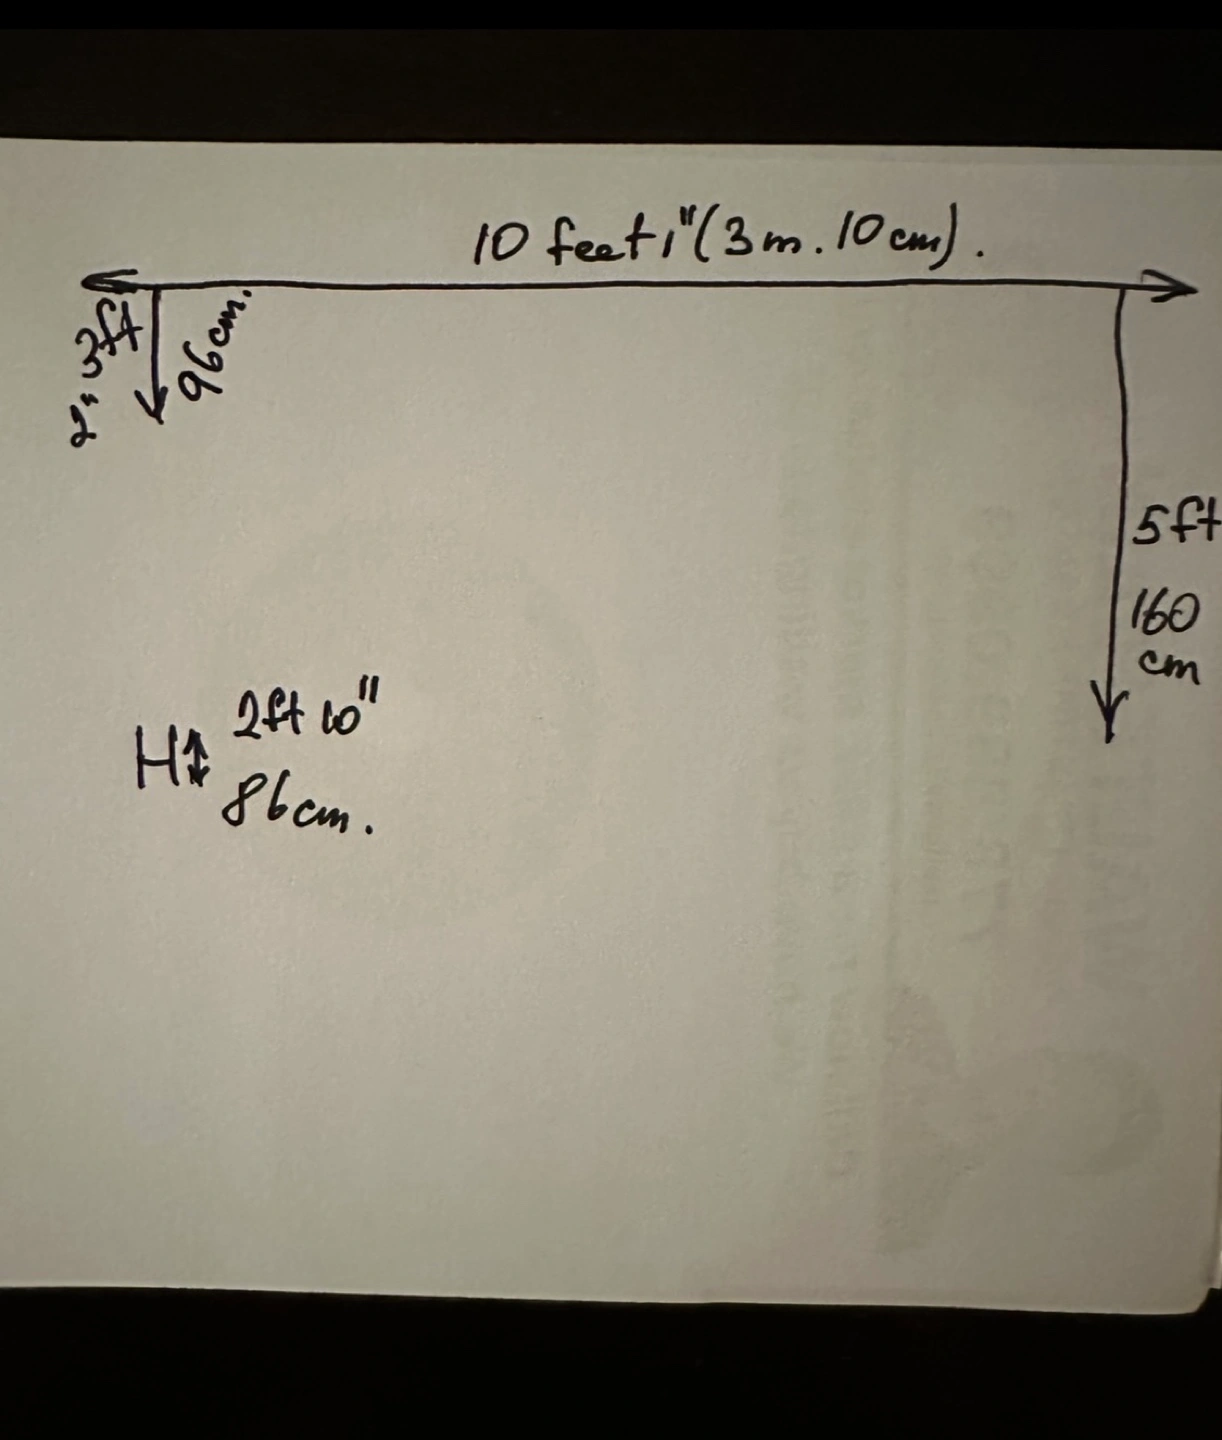 10 feet 1" (3 m. 10 cm).
3ft
2"
96 cm.
5ft
160
cm
H 2ft 10"
86 cm.